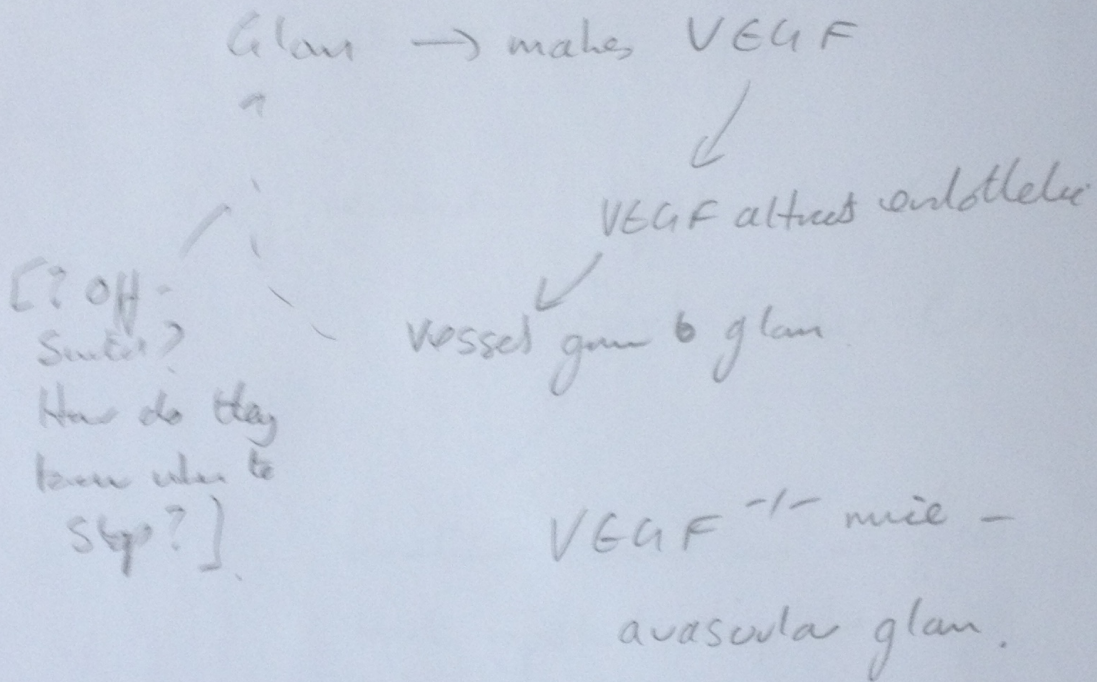 Glom → makes VEGF
VEGF attracts endothelia
vessel grow to glom
[? Off-
Switch?
How do they
know when to
stop?]
VEGF -/- mice -
avascular glom.